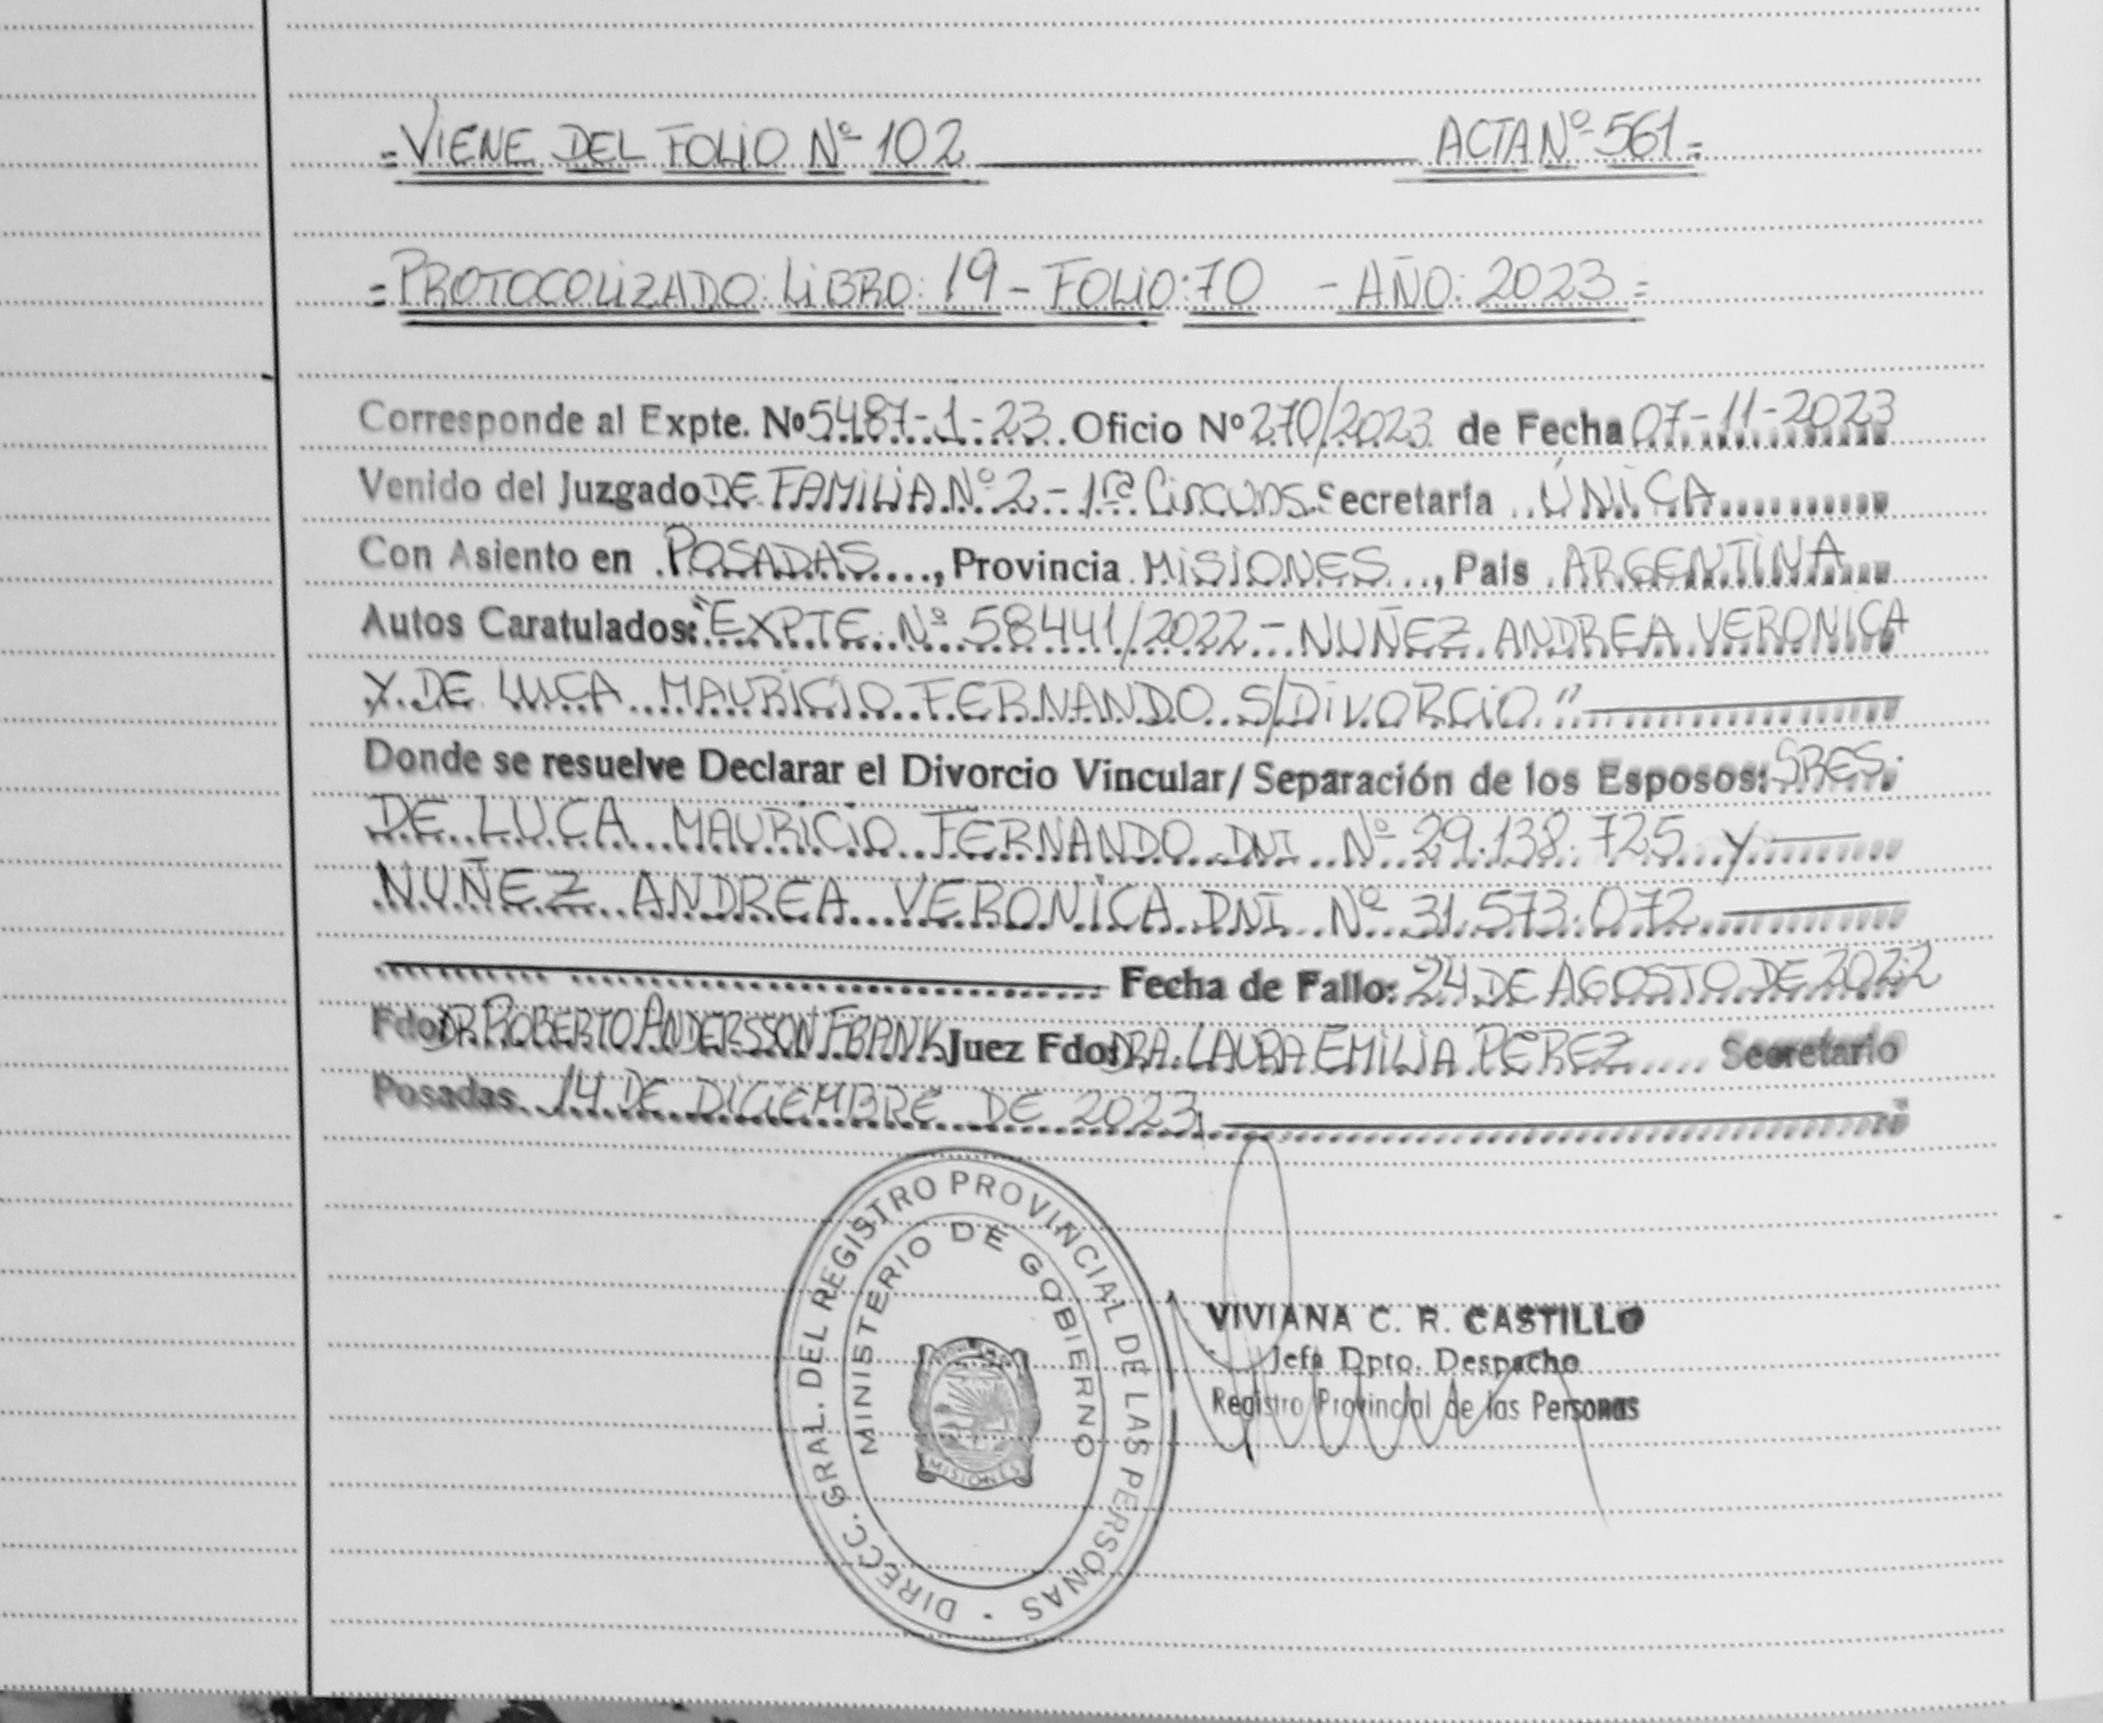 =VIENE DEL FOLIO Nº 102 ACTA Nº 561=
=PROTOCOLIZADO: LIBRO: 19 - FOLIO: 70 - AÑO: 2023=
Corresponde al Expte. Nº 5487-1-23 Oficio Nº 270/2023 de Fecha 07-11-2023
Venido del Juzgado DE FAMILIA Nº 2 - 1ra Circuns. Secretaría ÚNICA
Con Asiento en POSADAS, Provincia MISIONES, Pais ARGENTINA
Autos Caratulados: "EXPTE Nº 58441/2022 - NUÑEZ ANDREA VERONICA
Y DE LUCA MAURICIO FERNANDO S/DIVORCIO."
Donde se resuelve Declarar el Divorcio Vincular/ Separación de los Esposos: SRES.
DE LUCA MAURICIO FERNANDO DNI Nº 29.138.725 y
NUÑEZ ANDREA VERONICA DNI Nº 31.573.072
Fecha de Fallo: 24 DE AGOSTO DE 2022
Fdo: DR. ROBERTO ANDERSSON FRANK Juez Fdo: DRA. LAURA EMILIA PEREZ Secretario
Posadas 14 DE DICIEMBRE DE 2023
DIRECC. GRAL. DEL REGISTRO PROVINCIAL DE LAS PERSONAS
MINISTERIO DE GOBIERNO
MISIONES
VIVIANA C. R. CASTILLO
Jefa Dpto. Despacho
Registro Provincial de las Personas